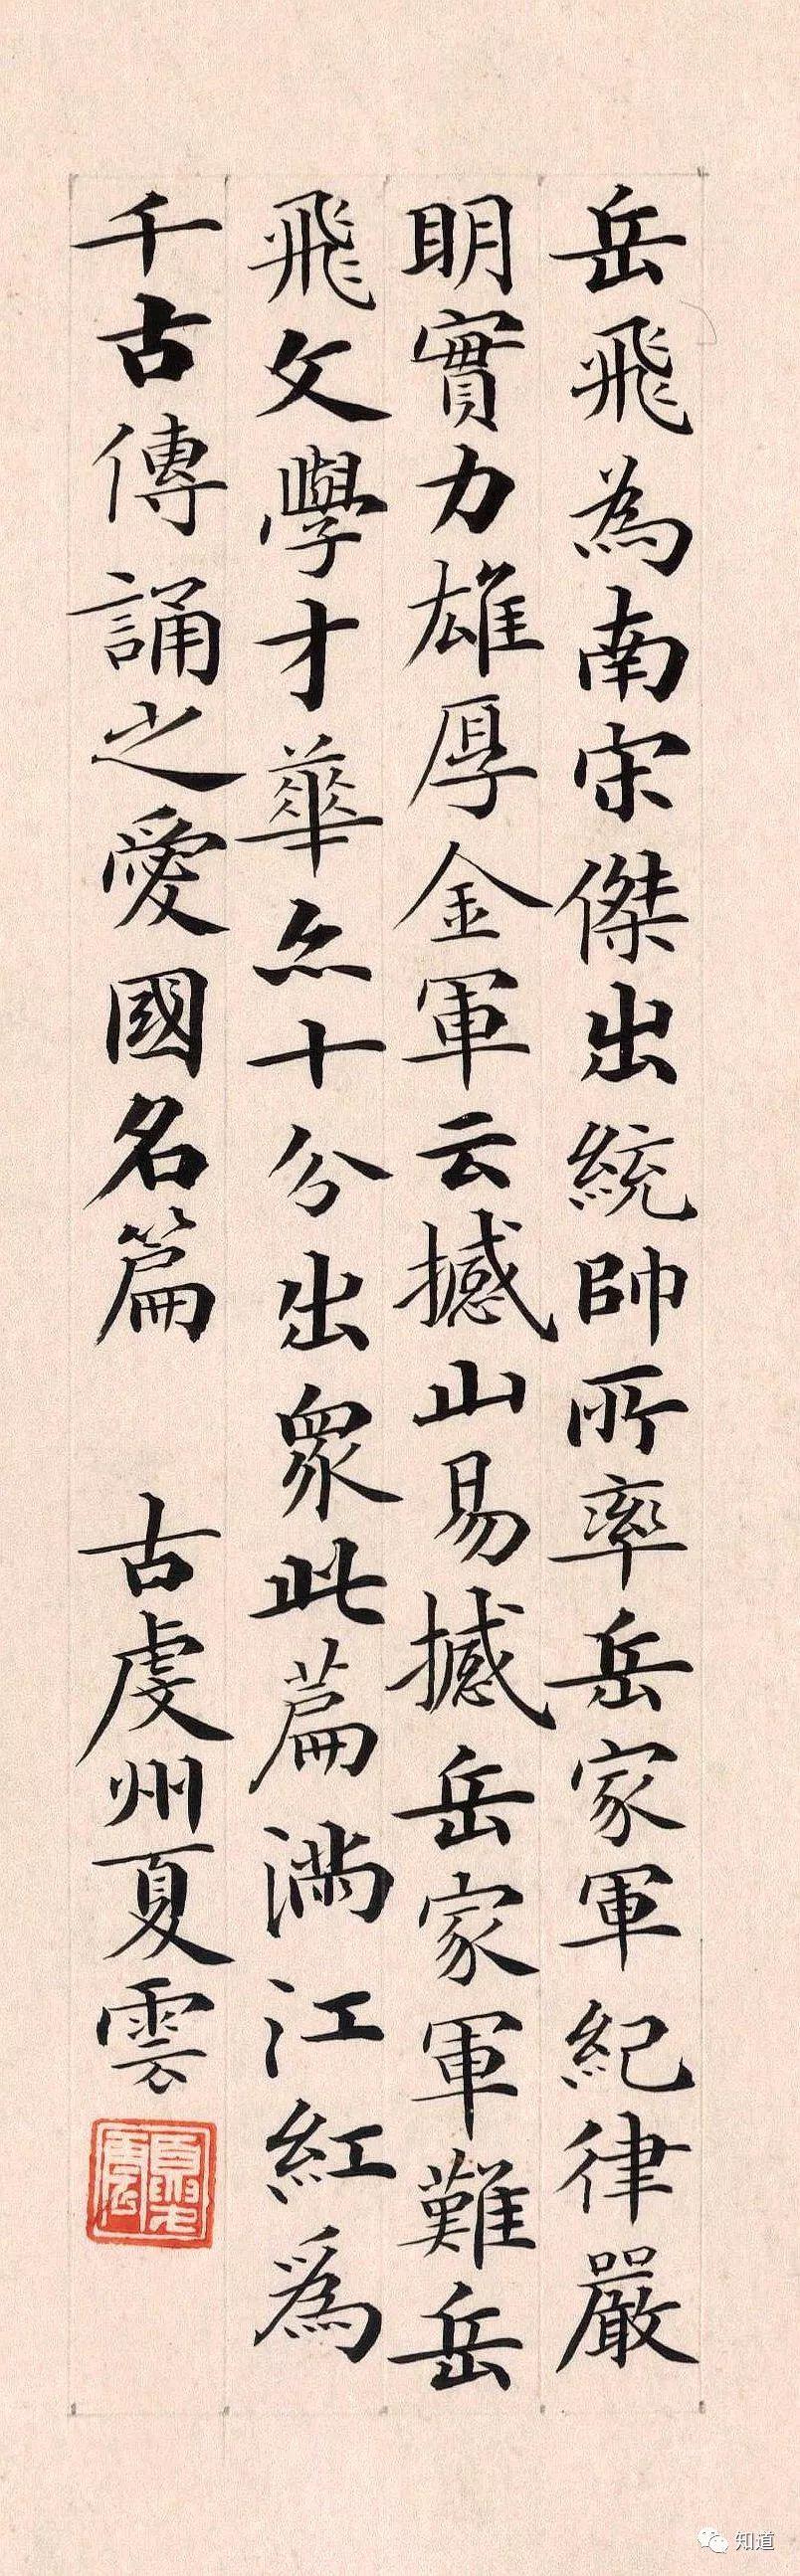 岳飛為南宋傑出統帥所率岳家軍紀律嚴
明實力雄厚金軍云撼山易撼岳家軍難岳
飛文學才華亦十分出眾此篇滿江紅爲
千古傳誦之愛國名篇 古虔州夏雲
知道